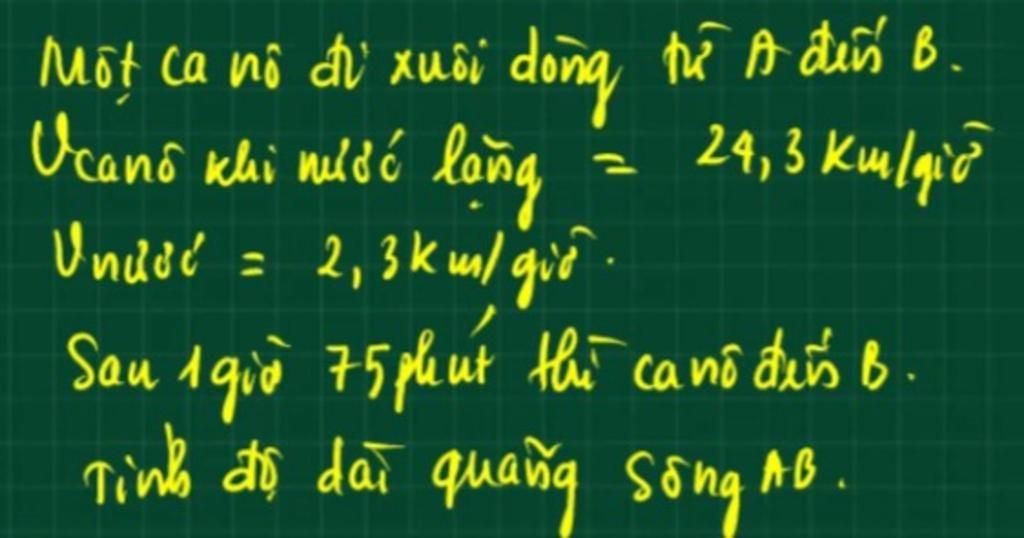 Một ca nô đi xuôi dòng từ A đến B.
Vcanô khi nước lặng = 24,3 Km/giờ
Vnước = 2,3 Km/giờ.
Sau 1 giờ 75 phút thì ca nô đến B.
Tính độ dài quãng sông AB.